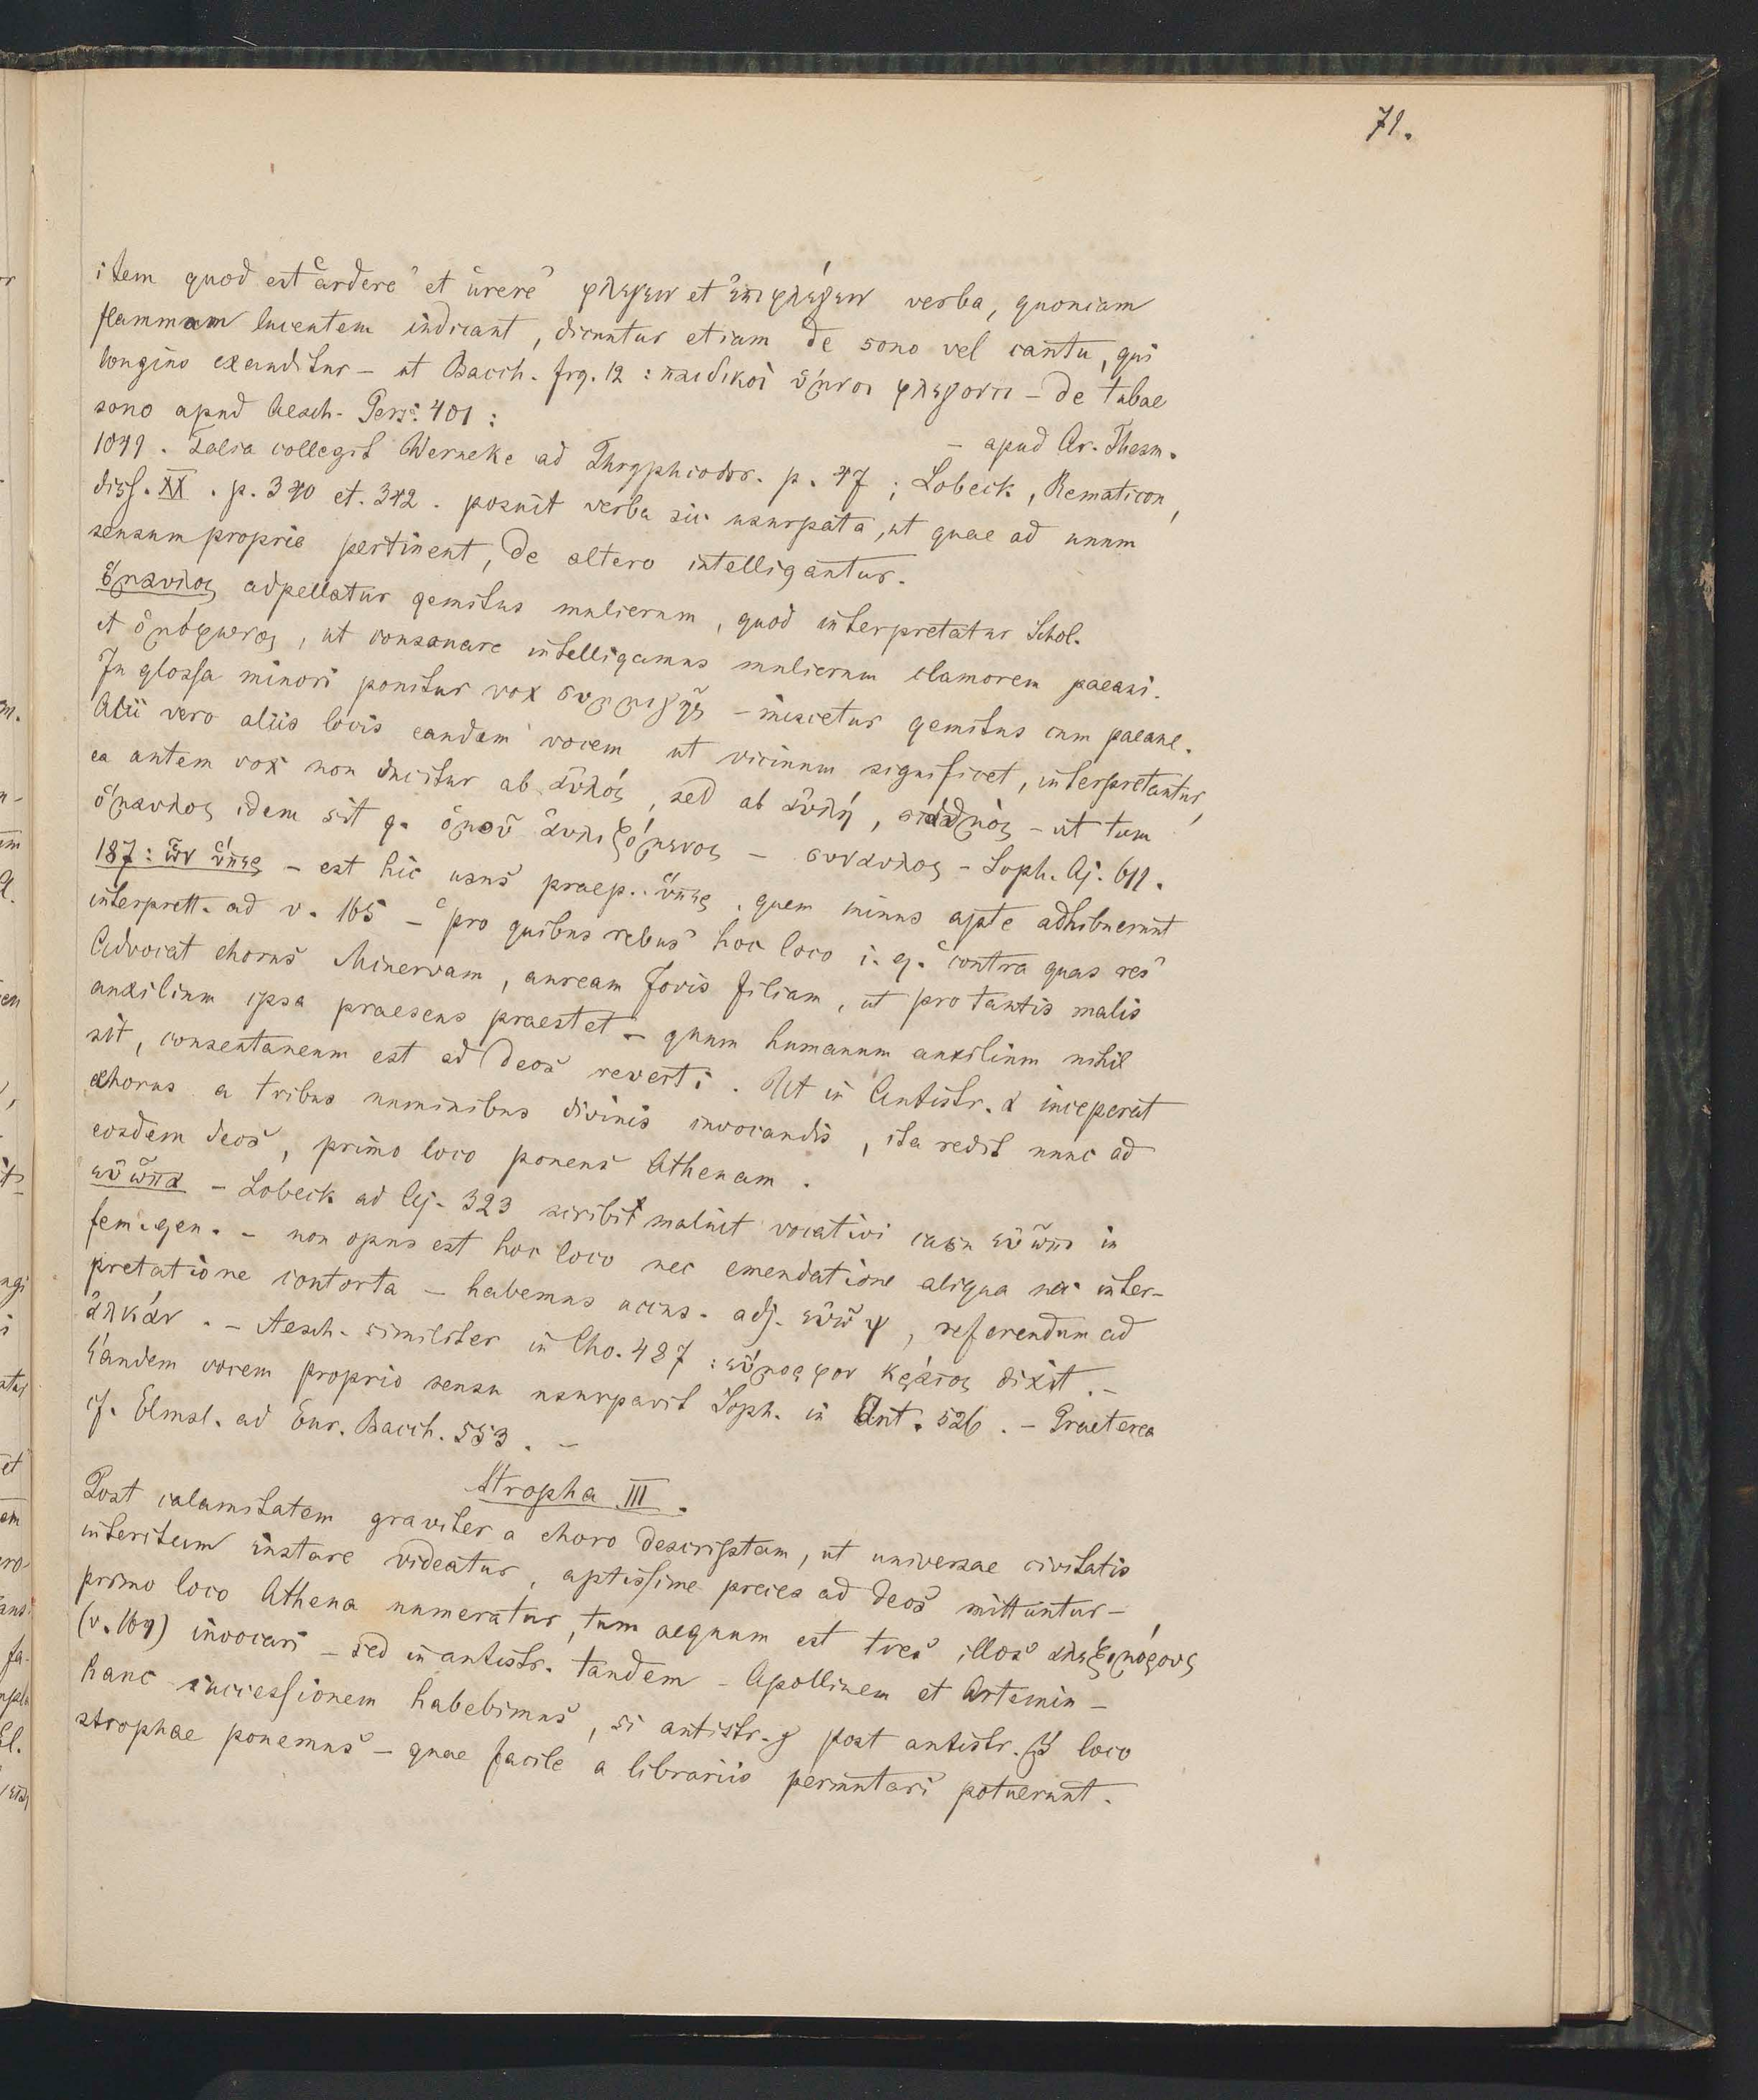 71.
item quod est ‘ardere’ et ‘urere’ φλεγειν et ἐπιφλέγειν verba, quoniam
flammam lucentem indicant, dicuntur etiam de sono vel cantu, qui
longius exauditur – ut Bacch. frg. 12 : παιδικοὶ ὕμνοι φλεγοντι – de tubae
sono apud Aesch. Pers. 401 :
– apud Ar. Thesm.
1041. Talia collegit Werneke ad Thryphiodor. p. 47 ; Lobeck, Rematicon,
diss. XX. p. 340 et. 342. posuit verba sic usurpata, ut quae ad unum
sensum proprie pertinent, de altero intelligantur.
ὅμαυλος adpellatur gemitus mulierum, quod interpretatur Schol.
et ὁμόφωνος, ut consonare intelligamus mulierum clamorem paeani.
In glossa minori ponitur vox συμμιγῆς – miscetur gemitus cum paeane.
Alii vero aliis locis eandem vocem ut vicinum significet, interpretantur,
ea autem vox non ducitur ab αὐλός, sed ab αὐλή, σταθμὸς – ut tum
ὅμαυλος idem sit q. ὁμοῦ αὐλιζόμενος – συναυλος – Soph. Aj. 611.
187 : ὧν ὕπερ – est hic usus praep. ὕπερ, quem minus apte adhibuerunt
interprett. ad v. 165 – ‘pro quibus rebus’ hoc loco i. q. ‘contra quas res’
Advocat chorus Minervam, auream Jovis filiam, ut pro tantis malis
auxilium ipsa praesens praestet – quum humanum auxilium nihil
sit, consentaneum est ad deos reverti. Ut in Antistr. α inceperat
chorus a tribus numinibus divinis invocandis, ita redit nunc ad
eosdem deos, primo loco ponens Athenam.
εὐῶπα – Lobeck ad Aj. 323 scribi maluit vocativi casu εὐῶπι in
fem. gen. – non opus est hoc loco nec emendatione aliqua nec inter-
pretatione contorta – habemus accus. adj. εὐῶψ, referendum ad
ἀλκάν. – Aesch. similiter in Cho. 487 : εὔμορφον κράτος dixit. –
Eandem vocem proprio sensu usurpavit Soph. in Ant. 526. – Praeterea
cf. Elmsl. ad Eur. Bacch. 553. –
Stropha III.
Post calamitatem graviter a choro descriptam, ut universae civitatis
interitum instare videatur, aptissime preces ad deos mittuntur –
primo loco Athena numeratur, tum aequum est tres illos ἀλεξιμόρους
(v. 164) invocari – sed in antistr. tandem Apollinem et Artemin –
hanc successionem habebimus, si antistr. γ post antistr. β' loco
strophae ponemus – quae facile a librariis permutari potuerunt.